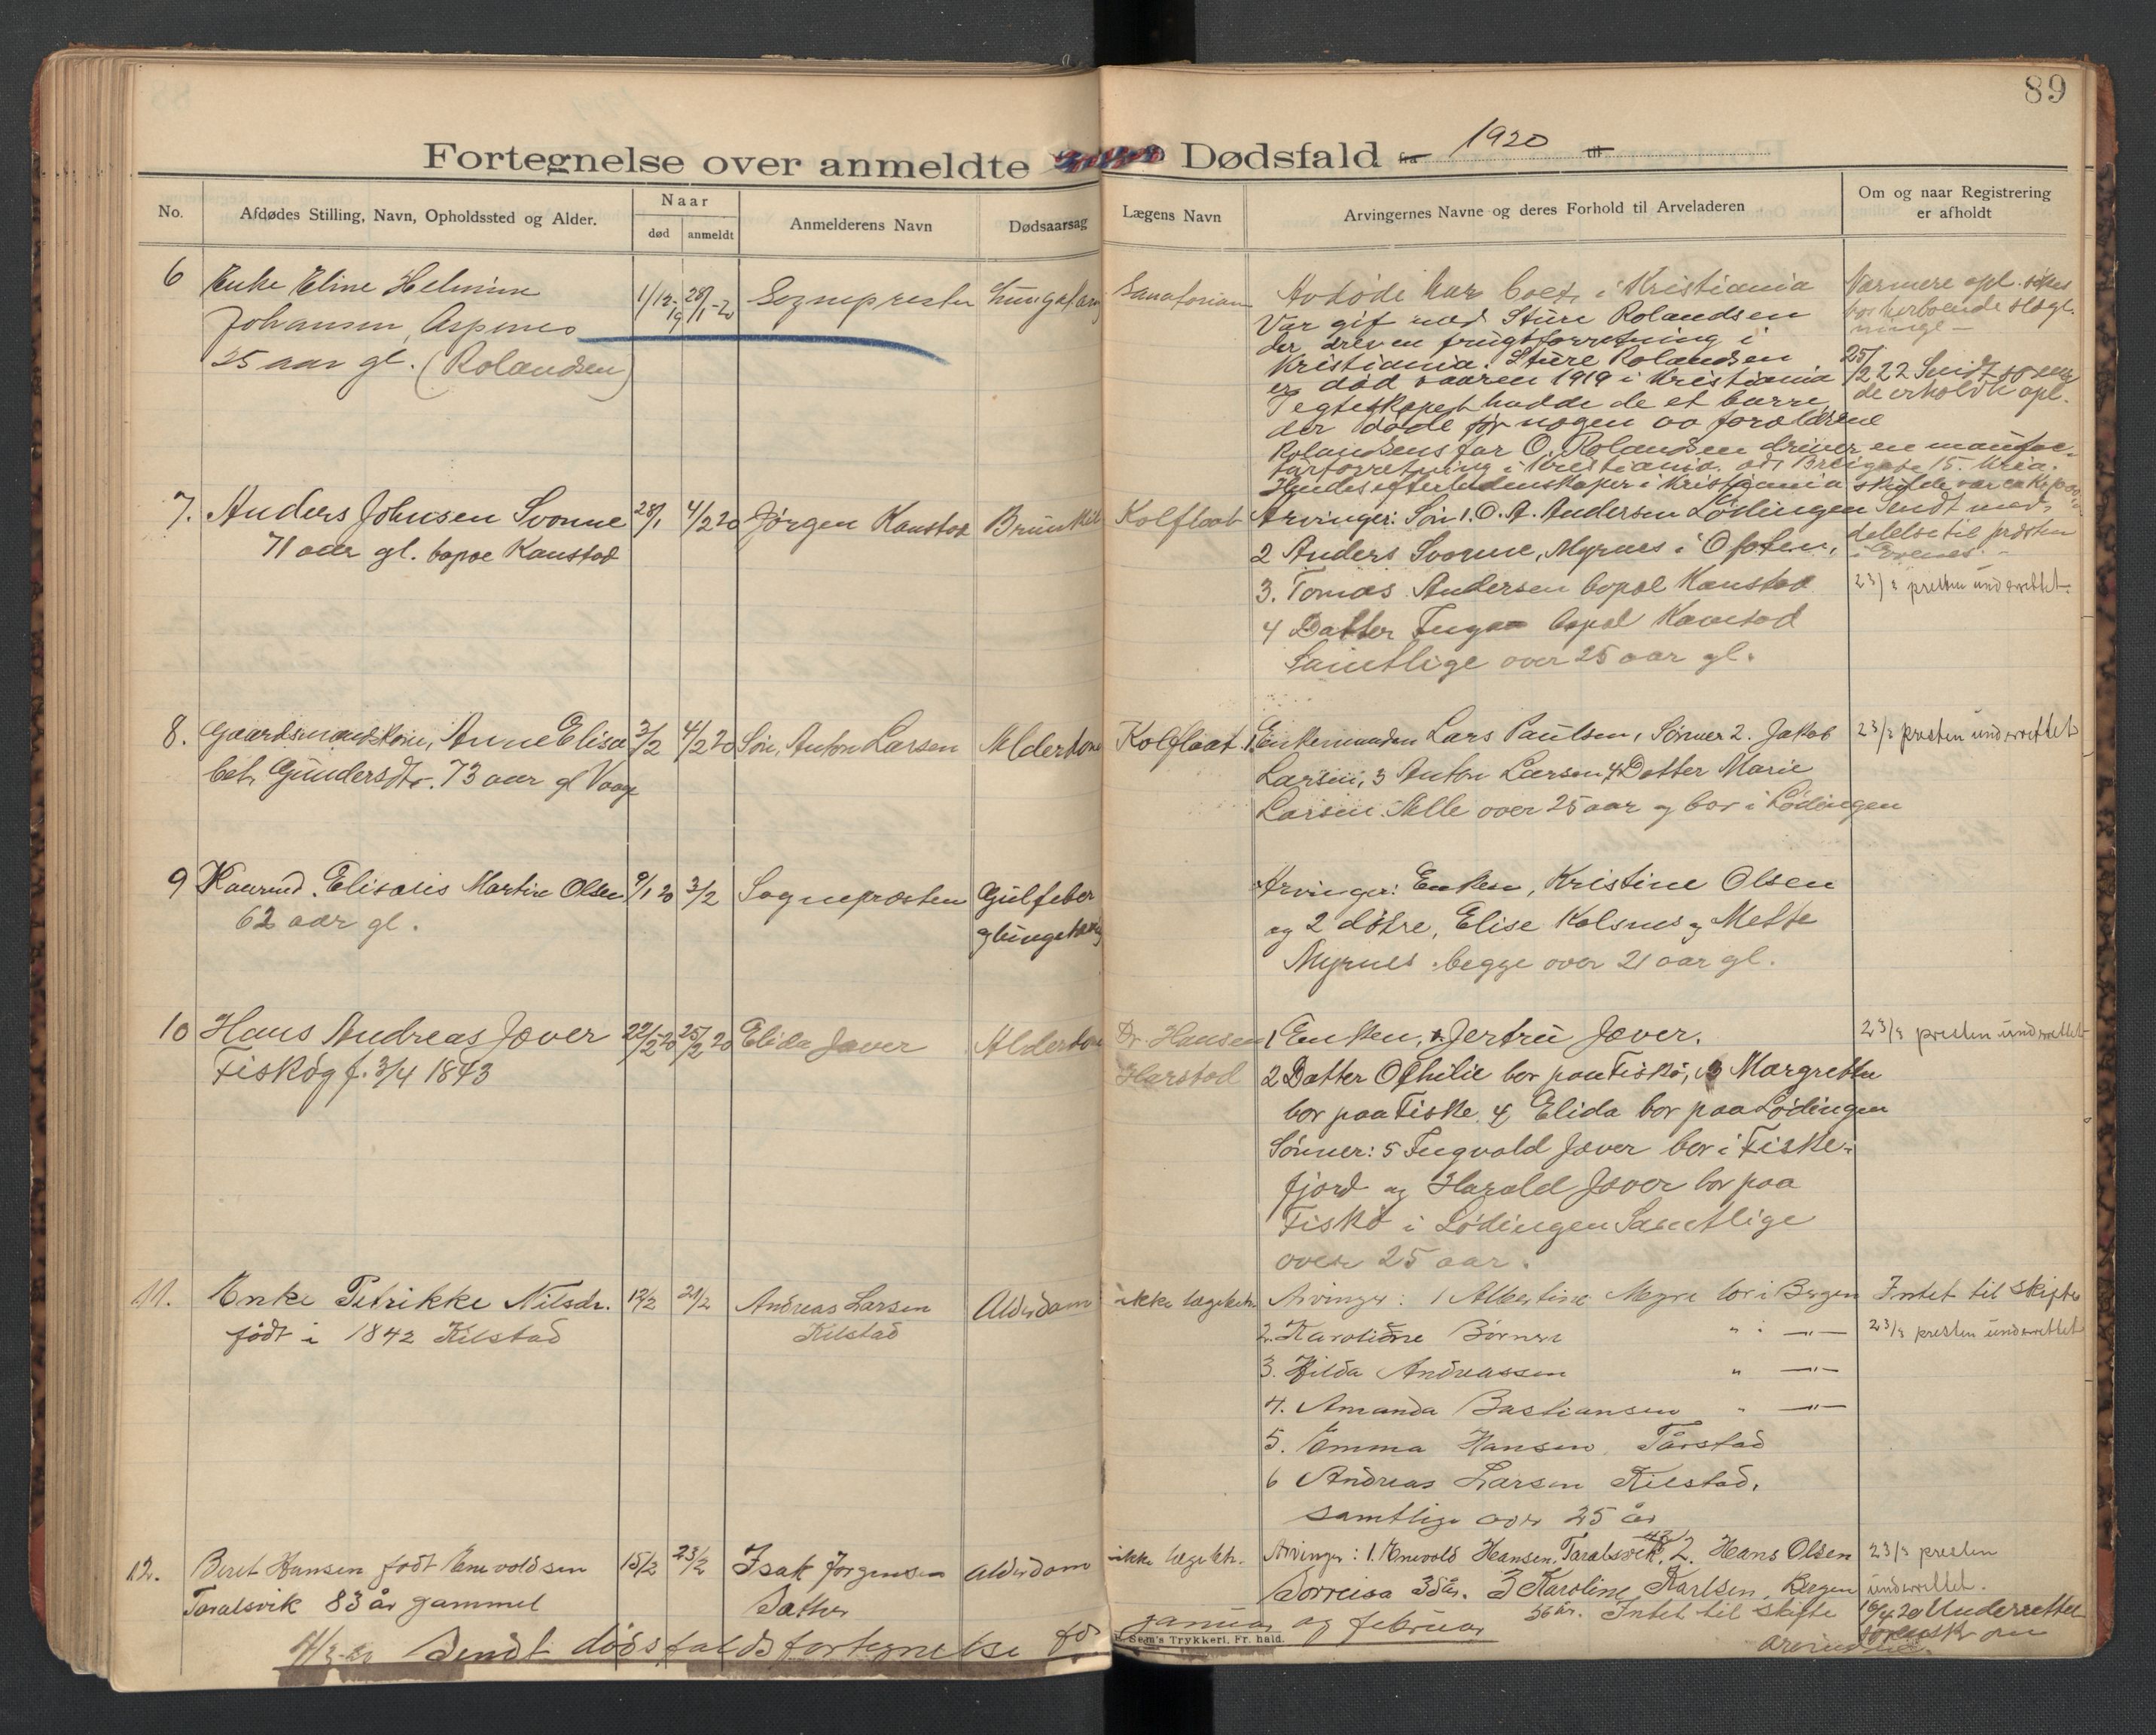 89
Fortegnelse over anmeldte Dødsfald fra 1920 til
No.
Afdødes Stilling, Navn, Opholdssted og Alder.
Naar
død
anmeldt
Anmelderens Navn
Dødsaarsag
Lægens Navn
Arvingernes Navne og deres Forhold til Arveladeren
Om og naar Registrering
er afholdt
6 Enke Eline Helmine
Johansen, Aspenes
25 aar gl. (Rolandsen)
1/12-19
28/1-20
Sognepresten
Sanatorium
Avdøde har boet i Kristiania
Var gift med Sture Rolandsen
der drev en frugtforretning i
Kristiania. Sture Rolandsen
er død vaaren 1919 i Kristiania
I egteskapet hadde de et barn
der døde før nogen av forældrene
Rolandsens far O. Rolandsen driver en manufac-
turforretning i Kristiania
Hendes efterladenskaper i Kristiania
Nærmere opl. søkes
hos herboende slegt-
ninge
7. Anders Johnsen Svonne
71 aar gl. bopæl Kanstad
28/1
4/2 20
Jørgen Kanstad
Kolflaat
Arvinger: Søn 1. O. A. Andersen Lødingen
2 Anders Svonne, Myrnes i Ofoten,
3. Tomas Andersen bopæl Kanstad
4 Datter Inga bopæl Kanstad
Samtlige over 25 aar gl.
Sendt med-
delelse til presten
i Evenes
23/3 presten underrettet
8. Gaardmandskone, Anne Elisa
bet Gundersdtr. 73 aar gl Vaage
3/2
4/2 20
Søn, Anton Larsen
Alderdom
Kolflaat
1. Enkemanden Lars Paulsen, Sønner 2. Jakob
Larsen, 3 Anton Larsen, 4 Datter Marie
Larsen. Alle over 25 aar og bor i Lødingen
23/3 presten underrettet
9 Kaarmd. Elisæus Martin Olsen
62 aar gl.
9/1 20
3/2
Sognepresten
Gulfeber
Arvinger: Enken, Kristine Olsen
og 2 døtre, Elise Kolsnes og Mette
Myrnes. begge over 21 aar gl.
10 Hans Andreas Jover
Fiskøg f. 3/4 1843
22/2 20
25/2 20
Elida Jover
Alderdom
Dr. Hansen
Harstad
1 Enken, Jertru Jover.
2 Datter Othilie bor paa Fiskø, 3 Margrethe
bor paa Fiske, 4 Elida bor paa Lødingen
Sønner: 5 Ingvald Jover bor i Fiske-
fjord og Harald Jover bor paa
Fiskø i Lødingen Samtlige
over 25 aar.
23/3 presten underrettet
11. Enke Petrikke Nilsdr.
født i 1842 Kilstad
12/2
21/2
Andreas Larsen
Kilstad
Alderdom
ikke lægebeh.
Arvinger: 1 Albertine Myre bor i Bergen
2. Karoline Børnes " - " -
3. Hilda Andreassen " - " -
4. Amanda Bastiansen " - " -
5. Emma Hansen, Tårstad
6 Andreas Larsen Kilstad,
samtlige over 25 år
Intet til skifte
23/3 presten underrettet
12. Beret Hansen født Enevoldsen
Taralsvik 83 år gammel
15/2
23/2
Isak Jørgensen
Alderdom
ikke lægebeh.
Arvinger: 1. Enevold Hansen, Taralsvik, 2. Hans Olsen
Sorreisa 38 år. 3 Karoline Karlsen, Bergen
36 år. Intet til skifte
23/3 presten
underrettet.
16/4 20 Underrettet
Sendt dødsfaldsfortegnelse for januar og februar
Sem's Trykkeri, Fr. hald.